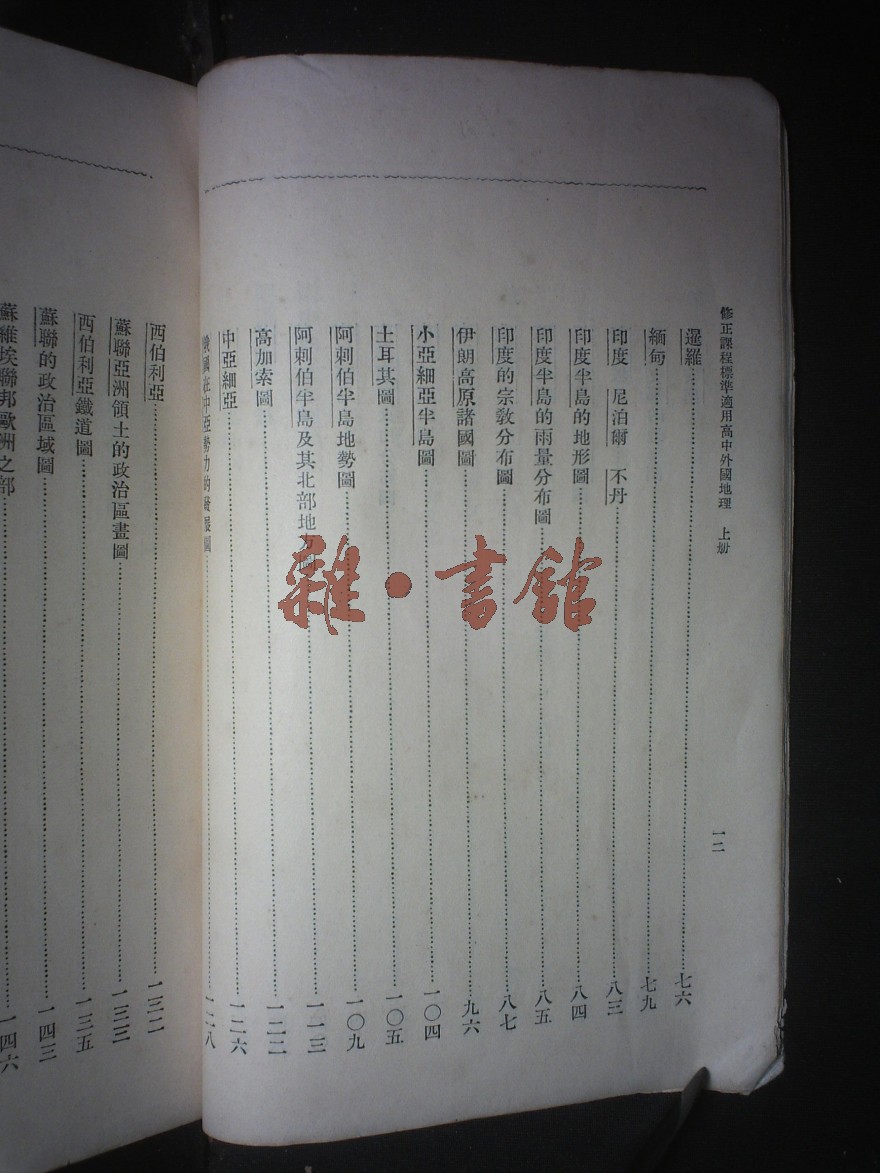 修正課程標準適用高中外國地理 上册
一二
暹羅……七六
緬甸……七九
印度 尼泊爾 不丹……八三
印度半島的地形圖……八四
印度半島的雨量分布圖……八五
印度的宗教分布圖……八七
伊朗高原諸國圖……九六
小亞細亞半島圖……一〇四
土耳其圖……一〇五
阿剌伯半島地勢圖……一〇九
阿剌伯半島及其北部地方圖……一一三
高加索圖……一二二
中亞細亞……一二六
俄國在中亞勢力的發展圖……一二八
西伯利亞……一三二
蘇聯亞洲領土的政治區畫圖……一三三
西伯利亞鐵道圖……一三五
蘇聯的政治區域圖……一四三
蘇維埃聯邦歐洲之部……一四六
雜·書館